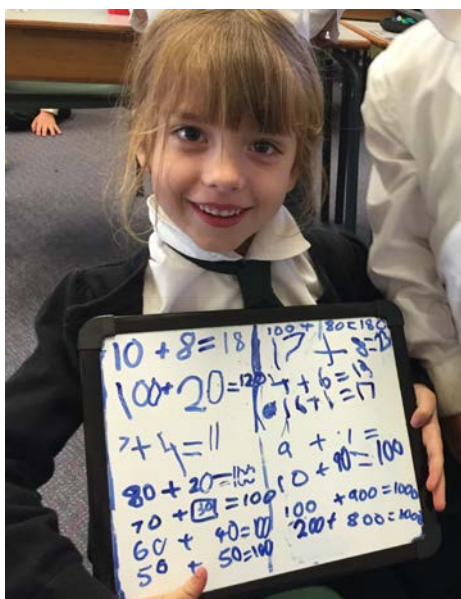 10 + 8 = 18
100 + 20 = 120
7 + 4 = 11
80 + 20 = 100
70 + 30 = 100
60 + 40 = 100
50 + 50 = 100
100 + 80 = 180
17 + 8 =
+ 6 = 13
16 + 1 = 17
9 + 1 =
10 + 90 = 100
100 + 900 = 1000
200 + 800 = 1000